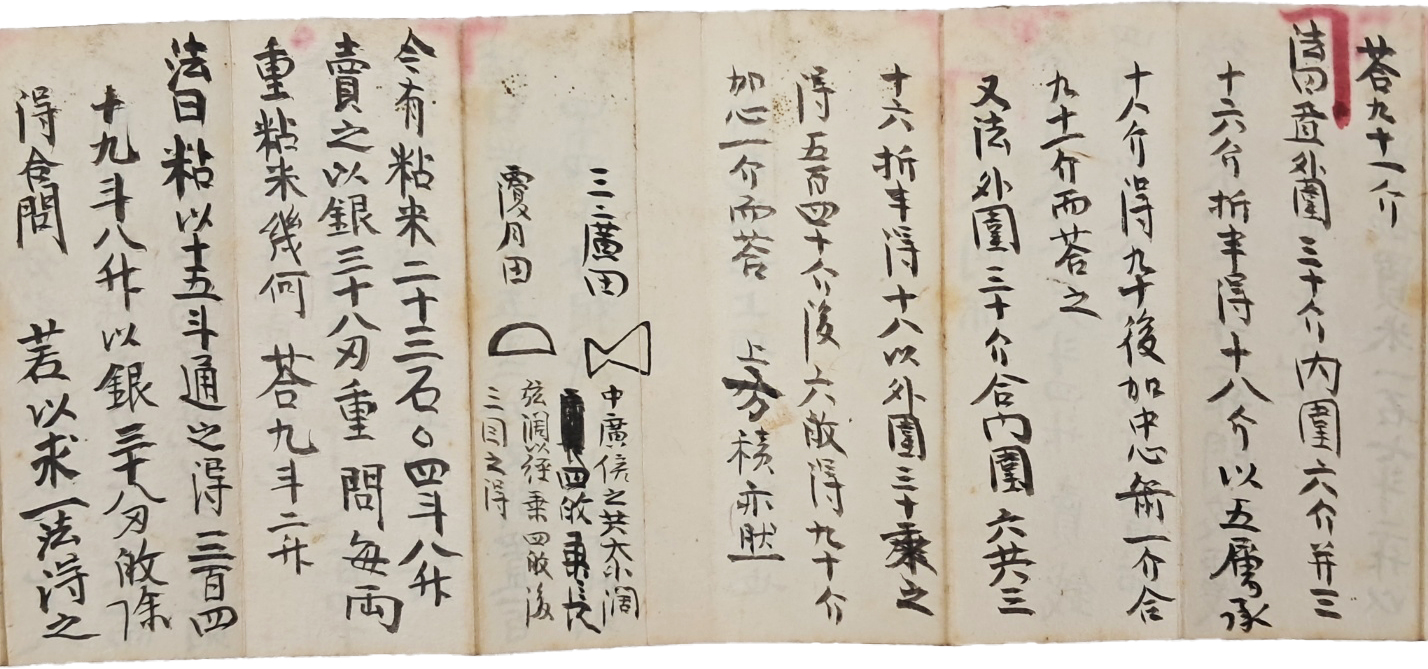 荅九十一个
法曰置外圍三十个内圍六个并三
十六个折半得十八个以五層承
十八个得九十後加中心爺一个合
九十一个而荅之
又法外圍三十个合内圍六共三
十六折半得十八以外圍三十乘之
得五百四十个後六敀得九十个
加心一个而荅 上方積亦然
三二廣田 中廣倍之共大小濶
四敀乘長
覆月田 弦濶以徑乘四敀後
三因之得
今有粘米二十三石〇四斗八升
賣之以銀三十八刃重 問每両
重粘米幾何 荅九斗二升
法曰粘以十五斗通之得三百四
十九斗八升以銀三十八刃敀除
得合問 若以求一法得之